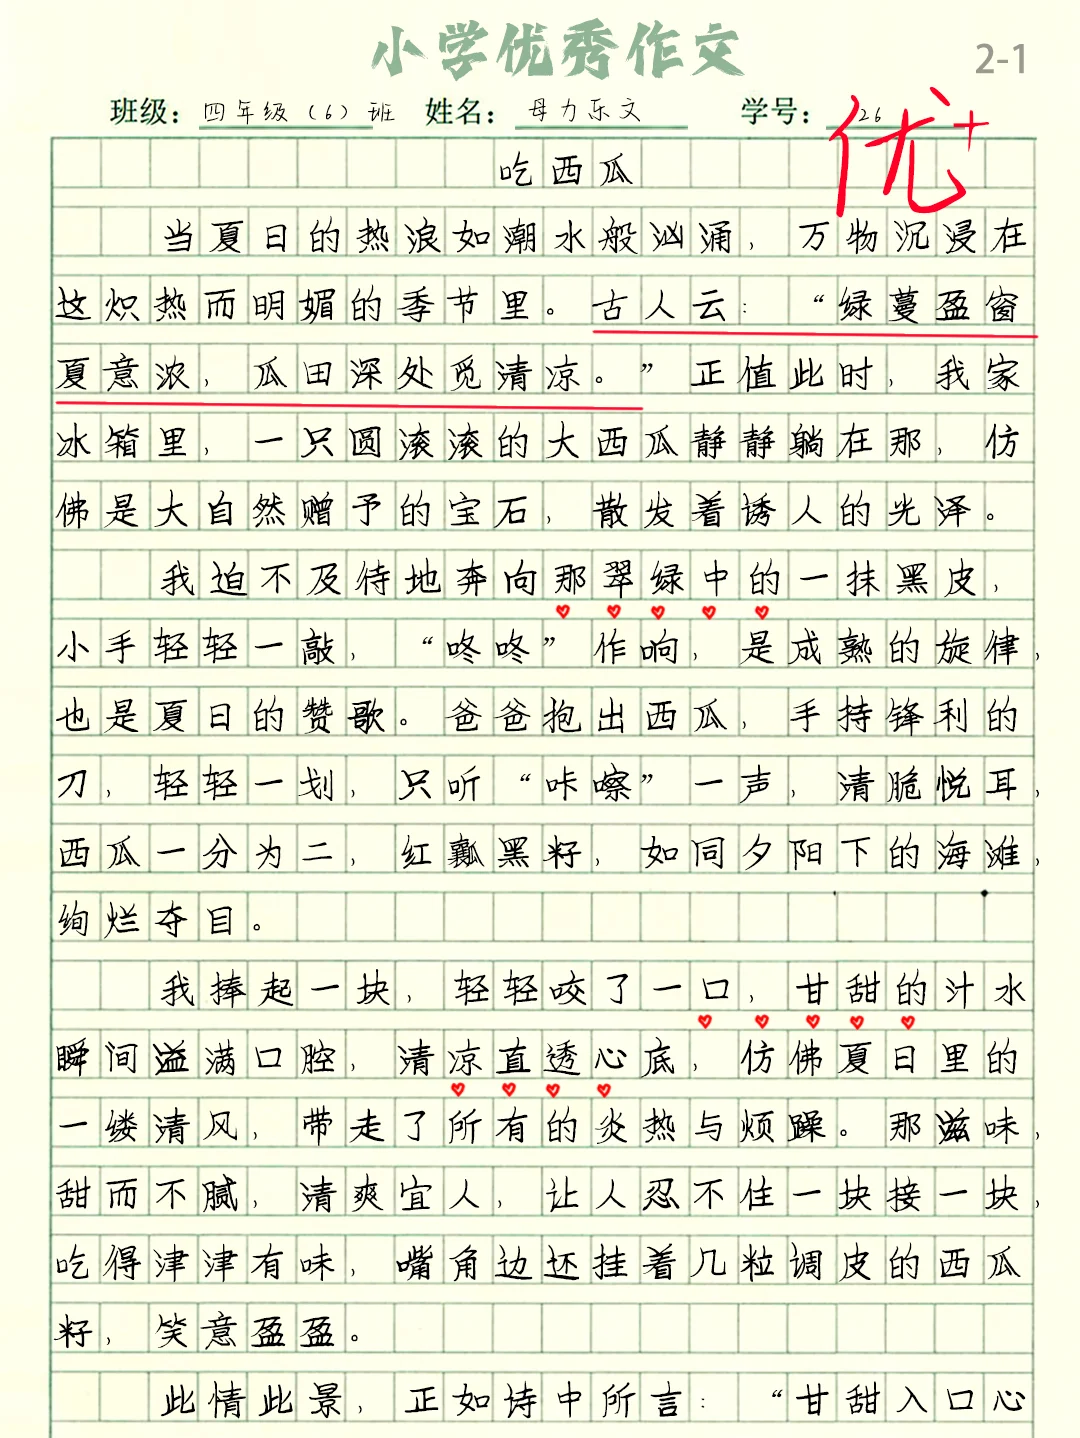 小学优秀作文
2-1
班级：四年级（6）班 姓名：母力乐文 学号：26
优+
吃西瓜
当夏日的热浪如潮水般汹涌，万物沉浸在
这炽热而明媚的季节里。古人云：“绿蔓盈窗
夏意浓，瓜田深处觅清凉。”正值此时，我家
冰箱里，一只圆滚滚的大西瓜静静躺在那，仿
佛是大自然赠予的宝石，散发着诱人的光泽。
我迫不及待地奔向那翠绿中的一抹黑皮，
小手轻轻一敲，“咚咚”作响，是成熟的旋律，
也是夏日的赞歌。爸爸抱出西瓜，手持锋利的
刀，轻轻一划，只听“咔嚓”一声，清脆悦耳，
西瓜一分为二，红瓤黑籽，如同夕阳下的海滩，
绚烂夺目。
我捧起一块，轻轻咬了一口，甘甜的汁水
瞬间溢满口腔，清凉直透心底，仿佛夏日里的
一缕清风，带走了所有的炎热与烦躁。那滋味，
甜而不腻，清爽宜人，让人忍不住一块接一块，
吃得津津有味，嘴角边还挂着几粒调皮的西瓜
籽，笑意盈盈。
此情此景，正如诗中所言：“甘甜入口心